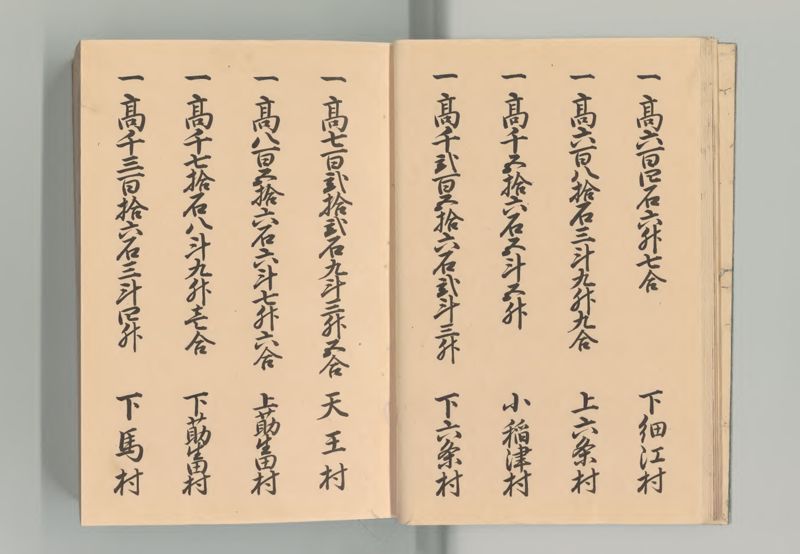 一 高六百四石六升七合 下細江村
一 高六百八拾石三斗九升九合 上六条村
一 高千五拾六石五斗五升 小稲津村
一 高千弐百五拾六石弐斗三升 下六条村
一 高七百弐拾弐石九斗三升五合 天王村
一 高八百五拾六石六斗七升六合 上莇生田村
一 高千七拾石八斗九升壱合 下莇生田村
一 高千三百拾六石三斗四升 下馬村